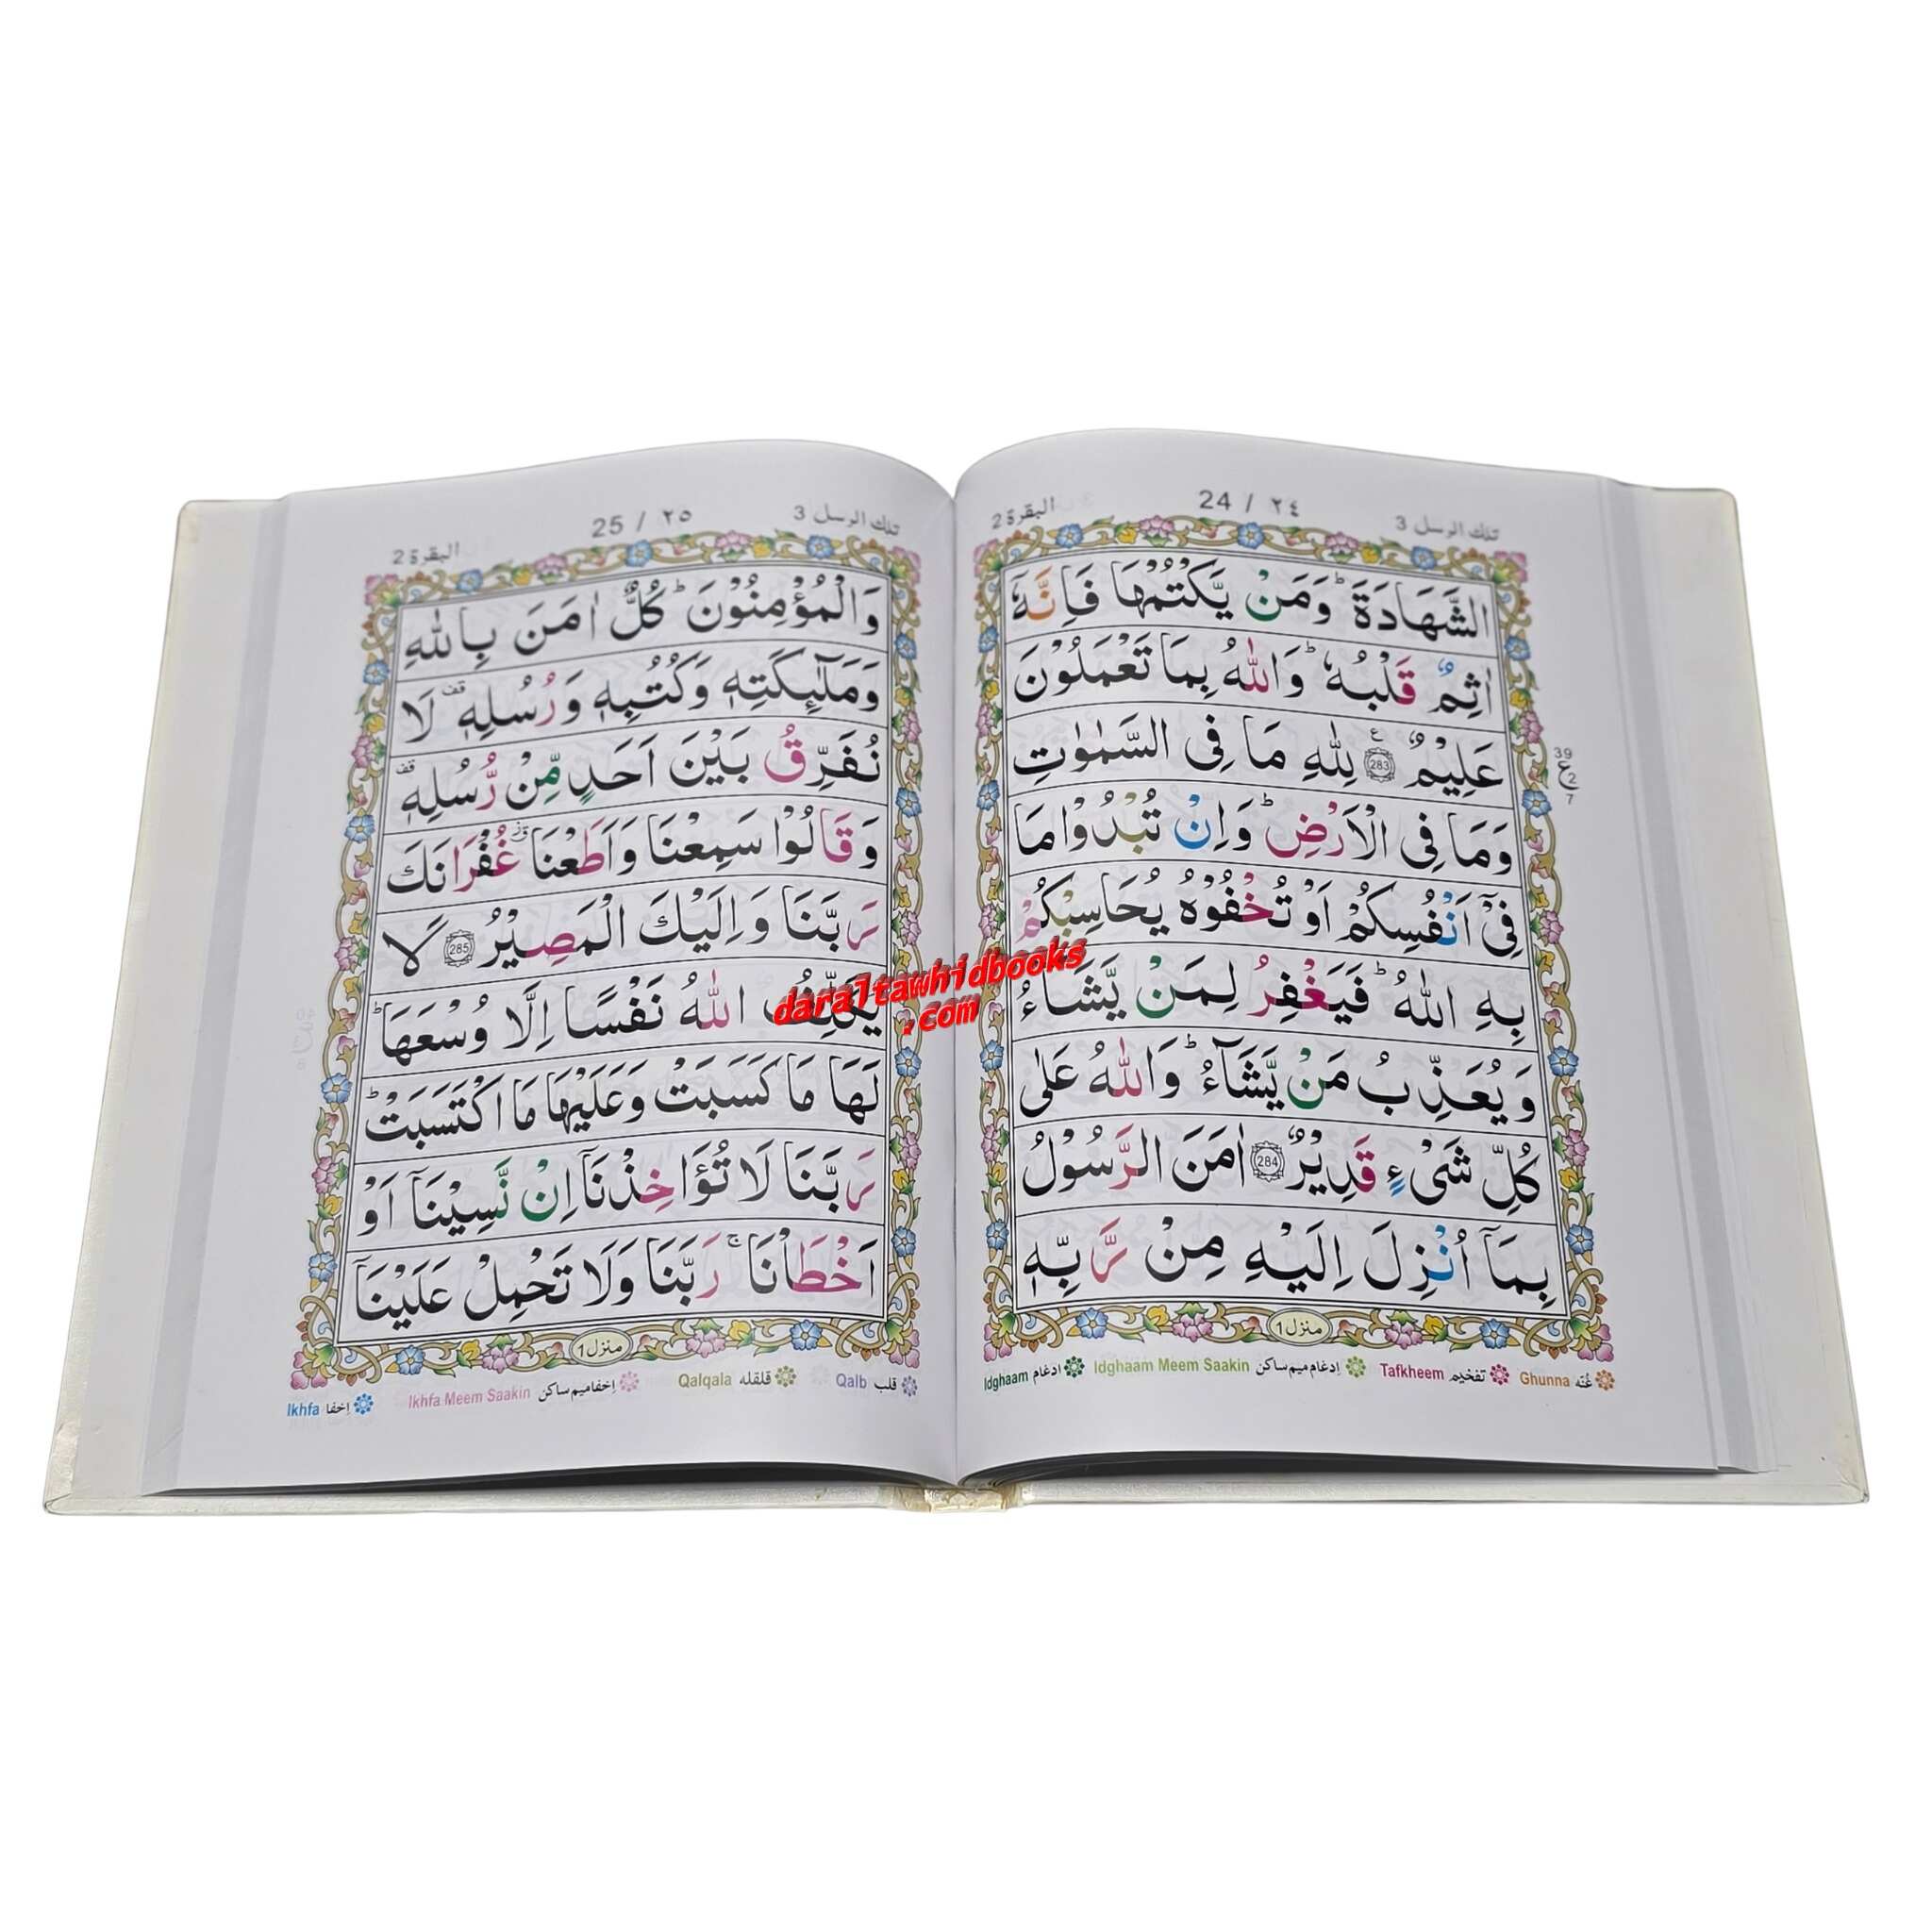 تلك الرسل 3
24 / ٢٤
البقرة 2
الشَّهَادَةَ ؕ وَمَنْ يَّكْتُمْهَا فَاِنَّهٗۤ
اٰثِمٌ قَلْبُهٗ ؕ وَاللّٰهُ بِمَا تَعْمَلُوْنَ
عَلِيْمٌ 283 ع لِلّٰهِ مَا فِى السَّمٰوٰتِ
وَمَا فِى الْاَرْضِ ؕ وَاِنْ تُبْدُوْا مَا
فِىْۤ اَنْفُسِكُمْ اَوْ تُخْفُوْهُ يُحَاسِبْكُمْ
بِهِ اللّٰهُ ؕ فَيَغْفِرُ لِمَنْ يَّشَآءُ
وَيُعَذِّبُ مَنْ يَّشَآءُ ؕ وَاللّٰهُ عَلٰى
كُلِّ شَىْءٍ قَدِيْرٌ 284 اٰمَنَ الرَّسُوْلُ
بِمَاۤ اُنْزِلَ اِلَيْهِ مِنْ رَّبِّهٖ
39
ع 2
7
منزل 1
غُنّه Ghunna
تفخيم Tafkheem
اِدغام ميم ساكن Idghaam Meem Saakin
ادغام Idghaam
تلك الرسل 3
25 / ٢٥
البقرة 2
وَالْمُؤْمِنُوْنَ ؕ كُلٌّ اٰمَنَ بِاللّٰهِ
وَمَلٰٓئِكَتِهٖ وَكُتُبِهٖ وَرُسُلِهٖ قف لَا
نُفَرِّقُ بَيْنَ اَحَدٍ مِّنْ رُّسُلِهٖ قف
وَقَالُوْا سَمِعْنَا وَاَطَعْنَا غُفْرَانَكَ
رَبَّنَا وَاِلَيْكَ الْمَصِيْرُ 285 لَا
يُكَلِّفُ اللّٰهُ نَفْسًا اِلَّا وُسْعَهَا ؕ
لَهَا مَا كَسَبَتْ وَعَلَيْهَا مَا اكْتَسَبَتْ ؕ
رَبَّنَا لَا تُؤَاخِذْنَاۤ اِنْ نَّسِيْنَاۤ اَوْ
اَخْطَاْنَا ۚ رَبَّنَا وَلَا تَحْمِلْ عَلَيْنَاۤ
منزل 1
قلب Qalb
قلقله Qalqala
اِخفا ميم ساكن Ikhfa Meem Saakin
اِخفا Ikhfa
daraltawhidbooks
.com